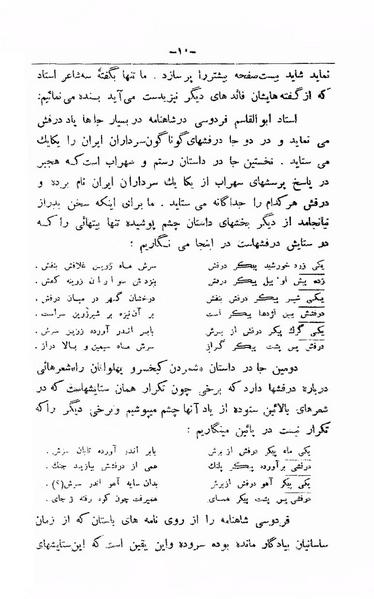 -۱۰-
نماید شاید بیست‌صفحه بیشتر را پر سازد . ما تنها بگفتهٔ سه‌شاعر استاد
که از گفته‌هایشان فائدهای دیگر نیز بدست می‌آید بسنده می‌نمائیم:
استاد ابوالقاسم فردوسی در شاهنامه در بسیار جاها یاد درفش
می نماید و در دو جا درفشهای گوناگون سرداران ایران را یکایک
می ستاید . نخستین جا در داستان رستم و سهراب است که هجیر
در پاسخ پرسشهای سهراب از یکا یک سرداران ایران نام برده و
درفش هر کدام را جداگانه می ستاید . ما برای اینکه سخن بدراز
نیانجامد از دیگر بخشهای داستان چشم پوشیده تنها بیتهائی را که
در ستایش درفشهاست در اینجا می نگاریم :
یکی زرد خورشید پیکر درفش سرش ماه زرین غلافش بنفش .
زده پیش او پیل پیکر درفش بنزدش سواران زرینه کفش .
یکی شیر پیکر درفش بنفش درخشان گهر در میان درفش .
درفشش ببین اژدها پیکر است بر آن‌نیزه بر شیر زرین سراست .
یکی گرگ پیکر درفش از برش بابر اندر آورده زرین سرش .
درفش پس پشت پیکر گراز سرش ماه سیمین و بالا دراز .
دومین جا در داستان شمردن کیخسرو پهلوانان را. شعرهائی
درباره درفشها دارد که برخی چون تکرار همان ستایشهاست که در
شعرهای بالائین ستوده از یاد آنها چشم میپوشیم و برخی دیگر را که
تکرار نیست در پائین مینگاریم :
یکی ماه پیکر درفش از برش بابر اندر آورده تابان سرش .
درفشی بر آورده پیکر پلنگ همی از درفشش بیازید جنگ .
یکی پیکر آهو درفش از برش بدان سایه آهو اندر سرش(؟) .
درفشی پس پشت پیکر همای همیرفت چون کوه رفته ز جای .
فردوسی شاهنامه را از روی نامه های باستان که از زمان
ساسانیان بیادگار مانده بوده سروده و این یقین است که این ستایشهای